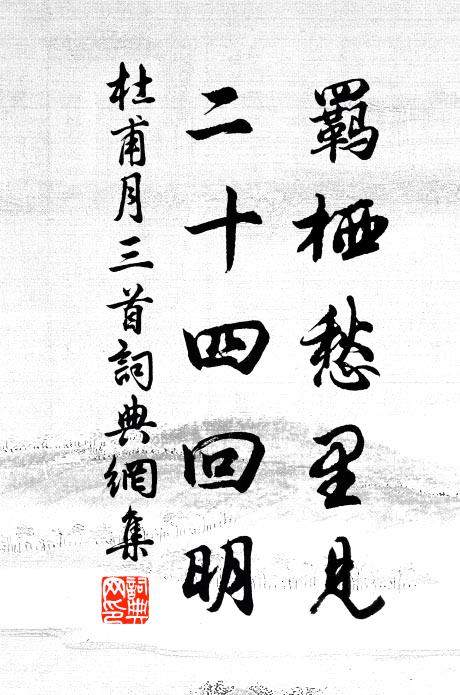 羈栖愁里見
二十四回明
杜甫月三首詞典網集
詞典網印